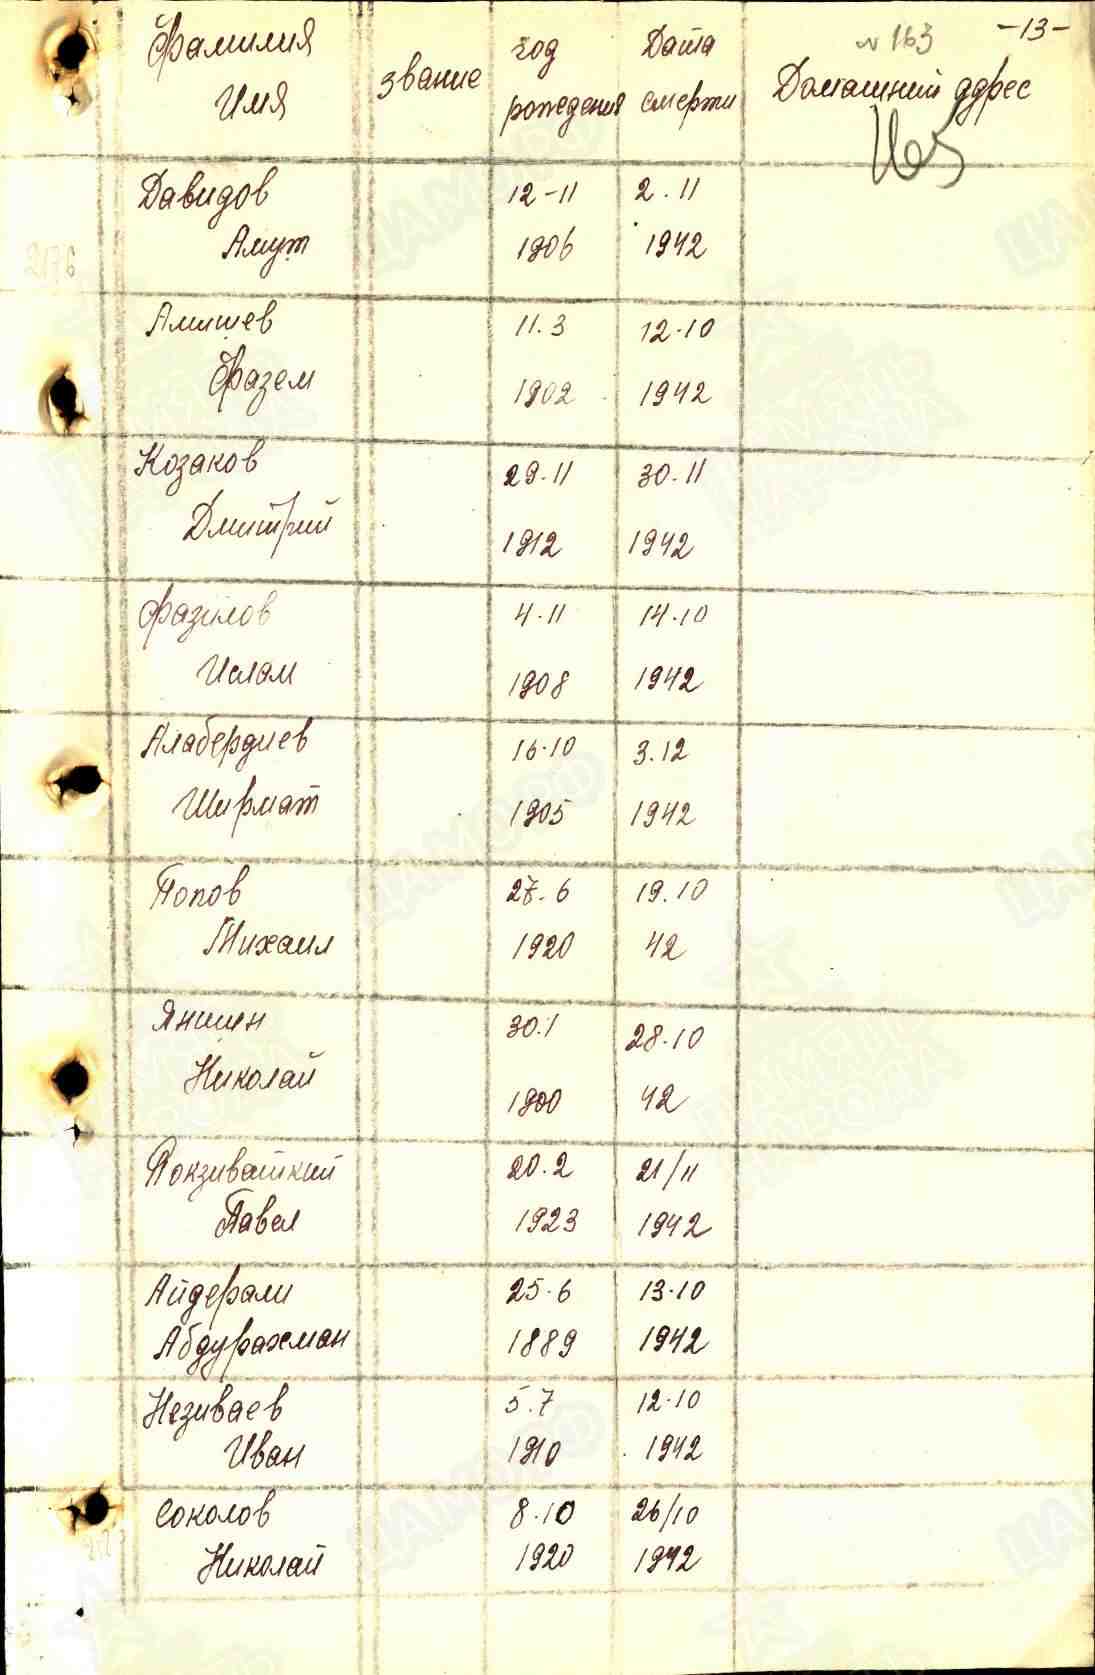 № 163 -13-
Фамилия Имя звание год рождения Дата смерти Домашний адрес
Давидов 12-11 2.11
Амут 1906 1942
Амишев 11.3 12.10
Фазем 1902 1942
Козаков 29.11 30.11
Дмитрий 1912 1942
Фазилов 4.11 14.10
Ислам 1908 1942
Алабердиев 16.10 3.12
Ширмат 1905 1942
Попов 27.6 19.10
Михаил 1920 42
Яншин 30.1 28.10
Николай 1900 42
20.2 21/11
Павел 1923 1942
Айдерали 25.6 13.10
Абдурахман 1889 1942
Незиваев 5.7 12.10
Иван 1910 1942
Соколов 8.10 26/10
Николай 1920 1942